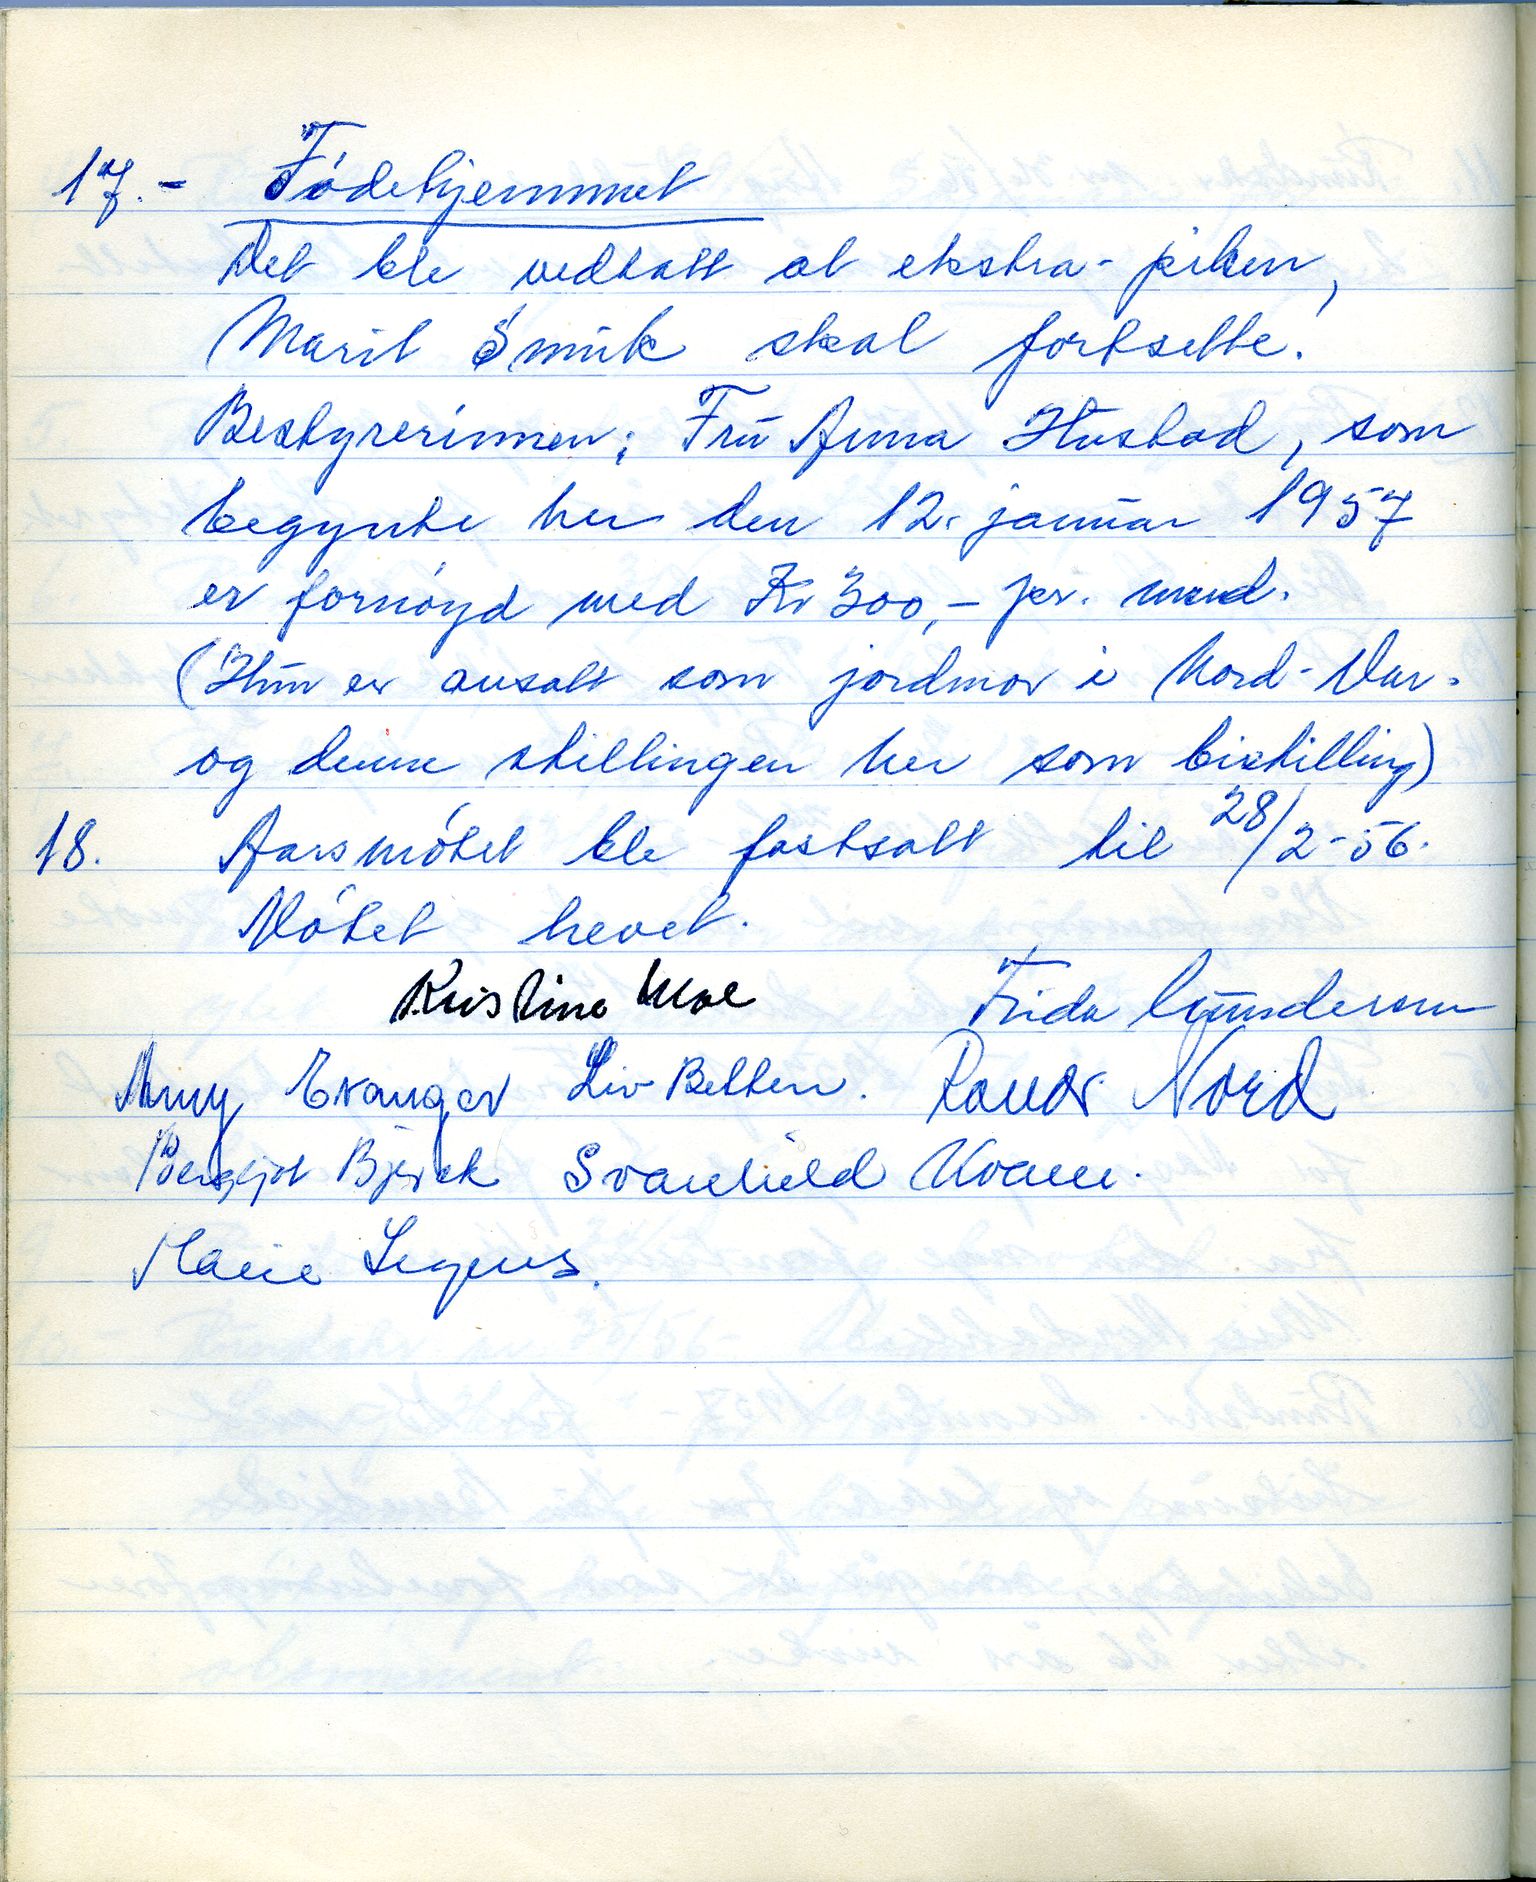 17. - Fødehjemmet
Det ble vedtatt at ekstra-piken,
Marit Smük skal fortsette.
Bestyrerinnen; Frü Anna Hustad, som
begynte her den 12. januar 1957
er fornøyd med Kr 300,- pr. mnd.
(Hun er ansatt som jordmor i Nord-Var.
og denne stillingen her som bistilling)
18. Aarsmøtet ble fastsatt til 28/2-56.
Møtet hevet.
Kristine Moe Frida Gunderson
Anny Evanger Liv Betten. Randi Nord
Bergljot Bjerck Svanhild Kvam.
Marie